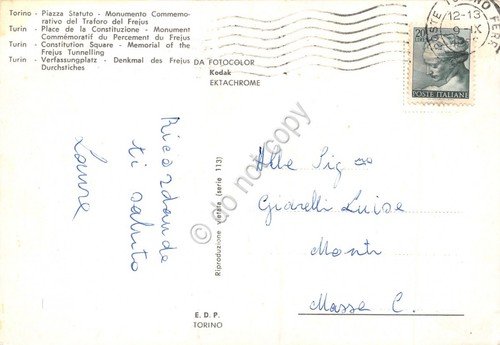 Torino - Piazza Statuto - Monumento Commemo-
rativo del Traforo del Frejus
Turin - Place de la Constituzione - Monument
Commémoratif du Percement du Frejus
Turin - Constitution Square - Memorial of the
Frejus Tunnelling
Turin - Verfassungplatz - Denkmal des Frejus
Durchstiches
DA FOTOCOLOR
Kodak
EKTACHROME
POSTE TORINO FERR
12-13
9 IX
POSTE ITALIANE
Ricordando
ti saluto
Laura
Riproduzione vietata (serie 113)
Alla Sig.na
Giarelli Luisa
Monti
Massa C.
E. D. P.
TORINO
© do not copy